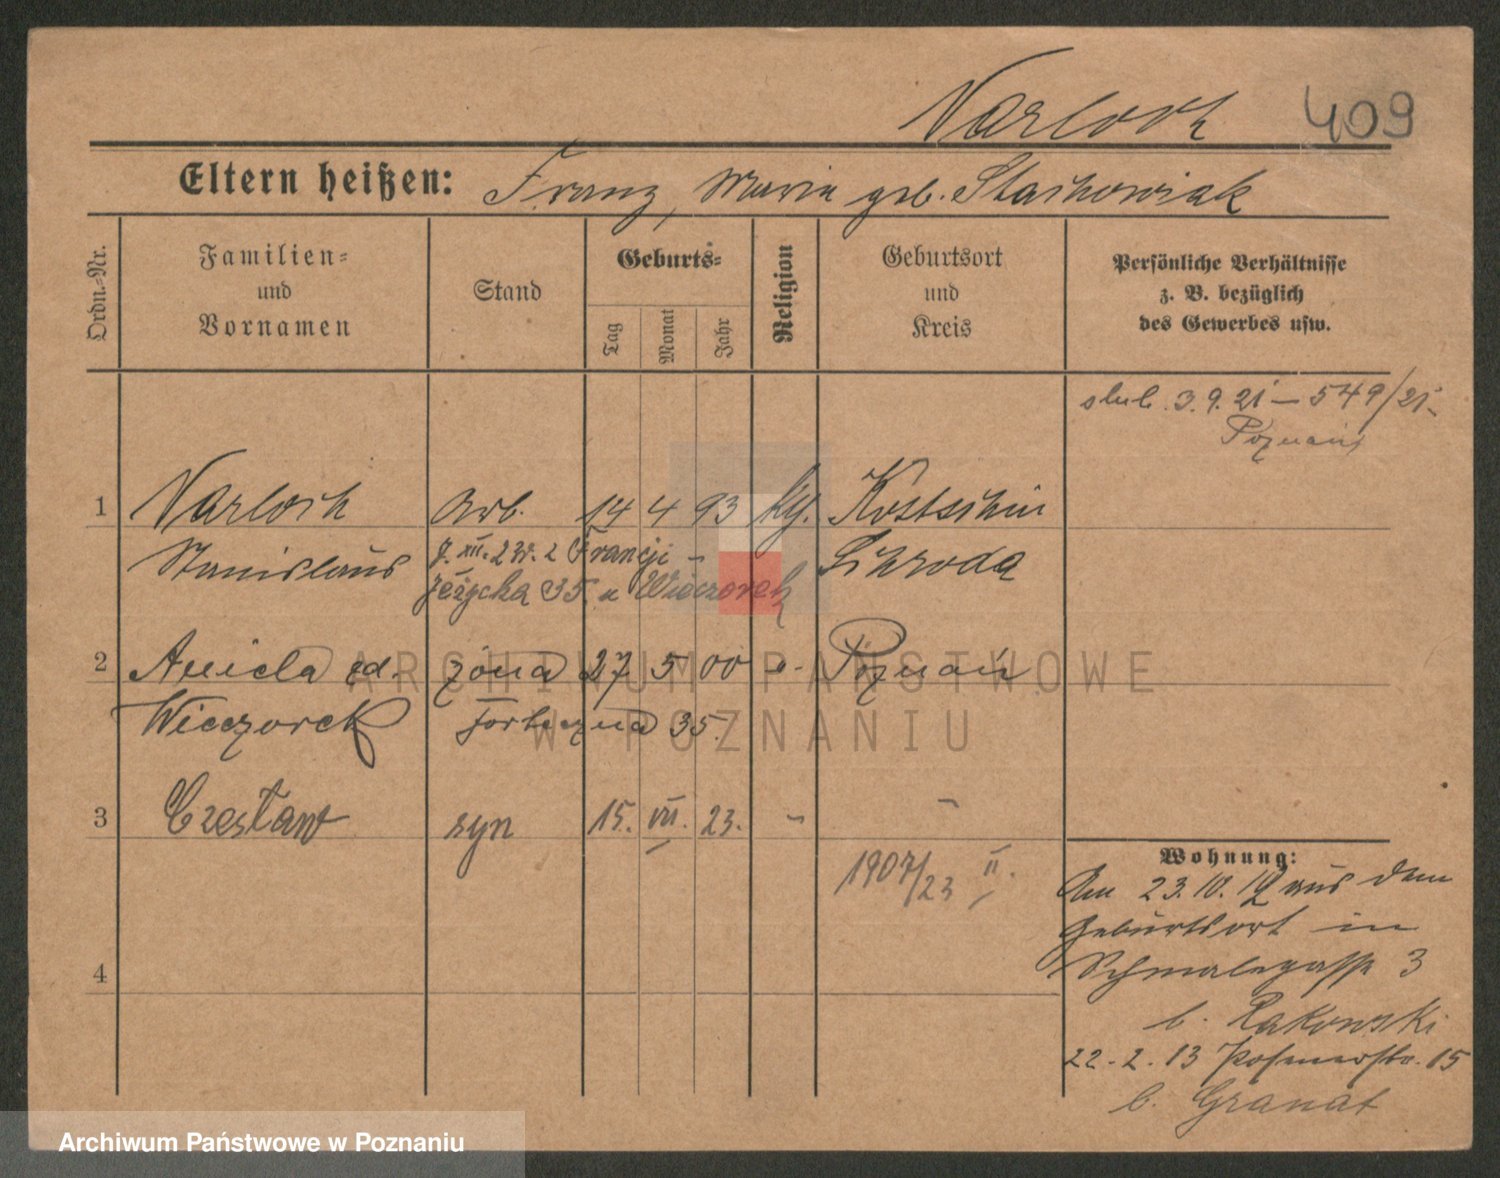 Warloch 409
Eltern heißen: Franz, Maria geb. Stachowiak
Ordn.-Nr.
Familien-
und
Vornamen
Stand
Geburts-
Tag
Monat
Jahr
Religion
Geburtsort
und
Kreis
Persönliche Verhältnisse
z. B. bezüglich
des Gewerbes usw.
slub. 3.9.21 – 549/21
Poznań
1 Warloch Arb. 14 4 93 kg. Kostschin
Stanislaus Schroda
XII. 23. z Francji –
Jeżycka 35. u Wieczorek
2 Aniela żona 27 5 00 Poznań
Wieczorek 35.
3 Czesław syn 15. VII. 23. –
1907/23 II.
4
Wohnung:
Am 23.10.12 aus dem
Geburtsort in
Schmalegasse 3
b. Rakowski
22-2-13 Posenerstr. 15
b. Granat
ARCHIWUM PAŃSTWOWE
W POZNANIU
Archiwum Państwowe w Poznaniu